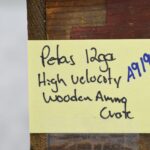 Petas 12ga
High Velocity A919
Wooden Ammo
Crate